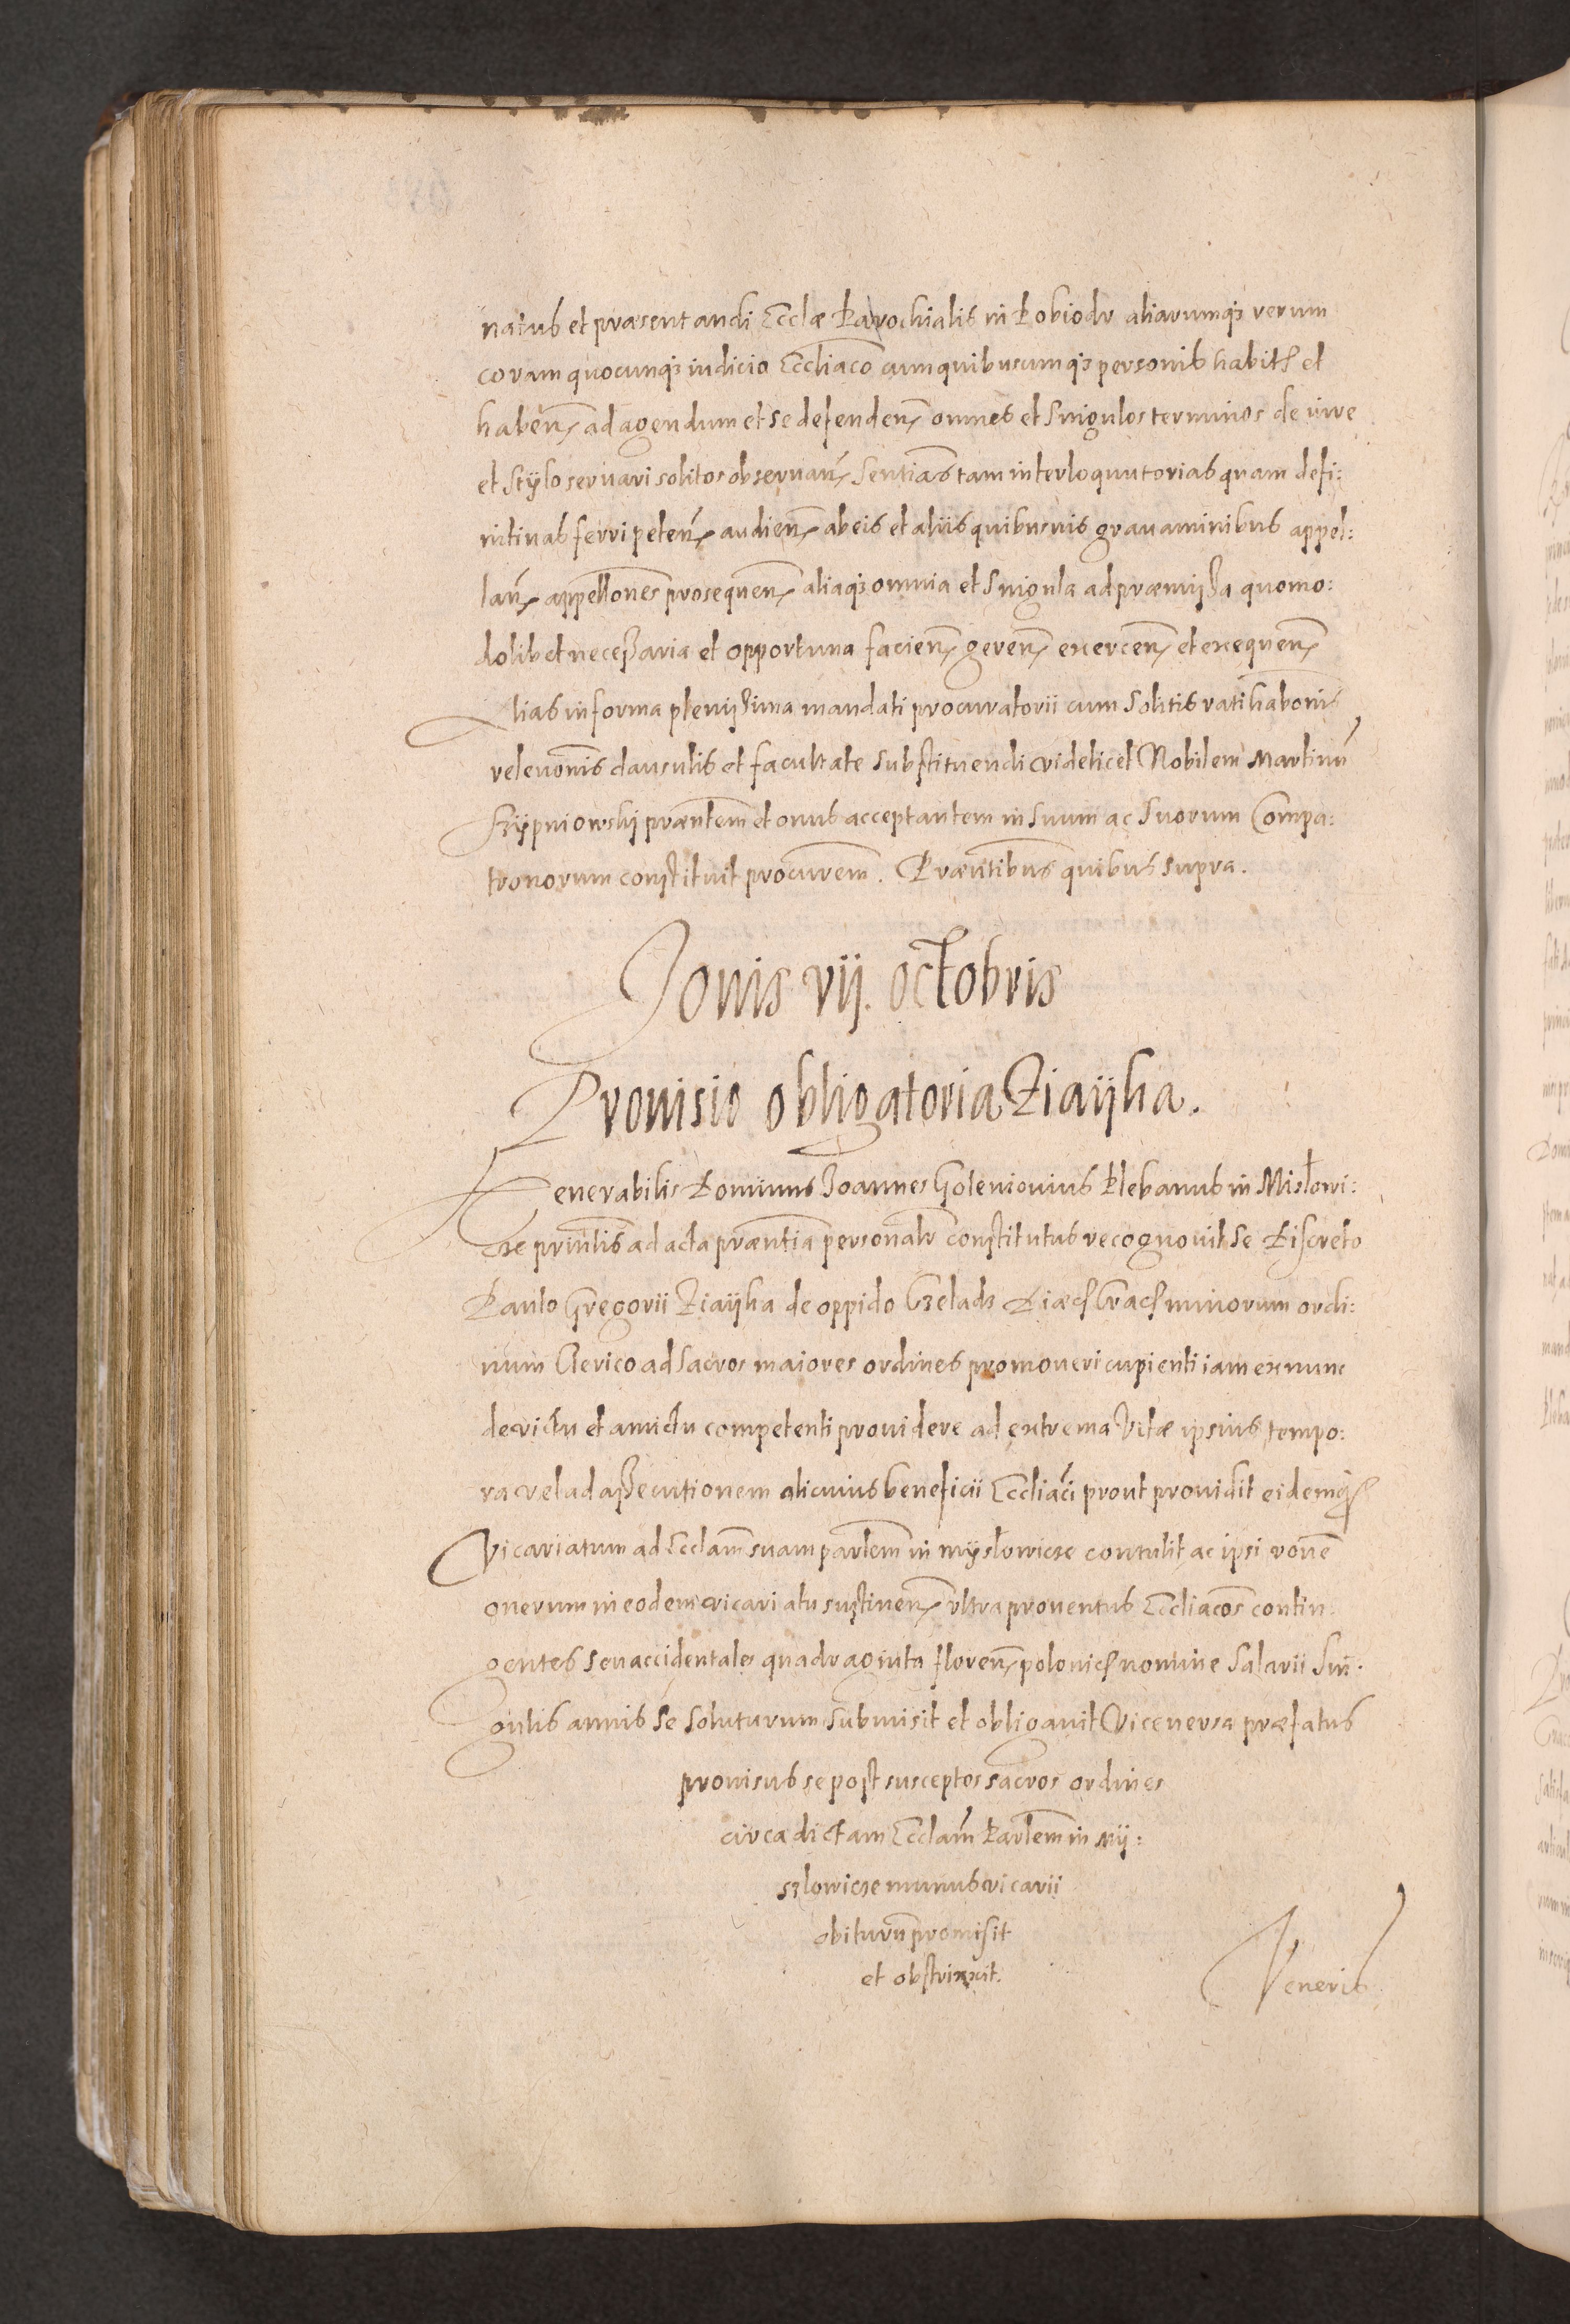 natus et præsentandi Eccłæ Parochialis in Pobiedr aliarumq3 rerum
coram quocunq3 iudicio Ecclīaco cum quibuscumq3 personis habit et
haben̄ ad agendum et se defenden̄ omnes et singulos terminos de iure
et stÿlo seruari solitos obseruan̄ sentīas tam interloquutorias quam defi:
nitiuas ferri peten̄ audien̄ ab eis et aliis quibusuis grauaminibus appel:
lan̄ appellōnes prosequen̄ aliaq3 omnia et singula ad præmissa quomo:
dolibet necessaria et opportuna facien̄ geren̄ exercen̄ et exequen̄
Alias in forma plenissima mandati procuratorii cum solitis ratihabōnis
releuōnis clausulis et facultate substituendi videlicet Nobilem Martinū
Rÿpniowskj præntem̄ et onus acceptantem in suum ac suorum Compa:
tronorum constituit procurem̄. Præntibus quibus supra.
Iouis vij. octobris
Prouisio obligatoria Ziaÿka.
Venerabilis Dominus Joannes Goleniouius Plebanus in Misłowi:
cze prīntis ad acta præntia personałr constitutus recognouit se Discreto
Paulo Gregorii Ziaÿka de oppido Czeladz Diæc Crac minorum ordi:
num Clerico ad sacros maiores ordines promoueri cupienti iam ex nunc
de victu et amictu competenti prouidere ad extrema vitæ ipsius tempo:
ra vel ad assecutionem alicuius beneficii Ecclīaci prout prouidit eidemq3
Vicariatum ad Eccłam suam parłem in mÿslowicze contulit ac ipsi rōnē
onerum in eodem vicariatu sustinen̄ vltra prouentus Ecclīacos contin:
gentes seu accidentales quadraginta floren̄ polonic nomine salarii sin:
gulis annis se soluturum submisit et obligauit Vice versa præfatus
prouisus se post susceptos sacros ordines
circa dictam Eccłam Parłem in Mÿ:
szlowicze munus vicarii
obiturū promisit
et obstrinxit.
Veneris